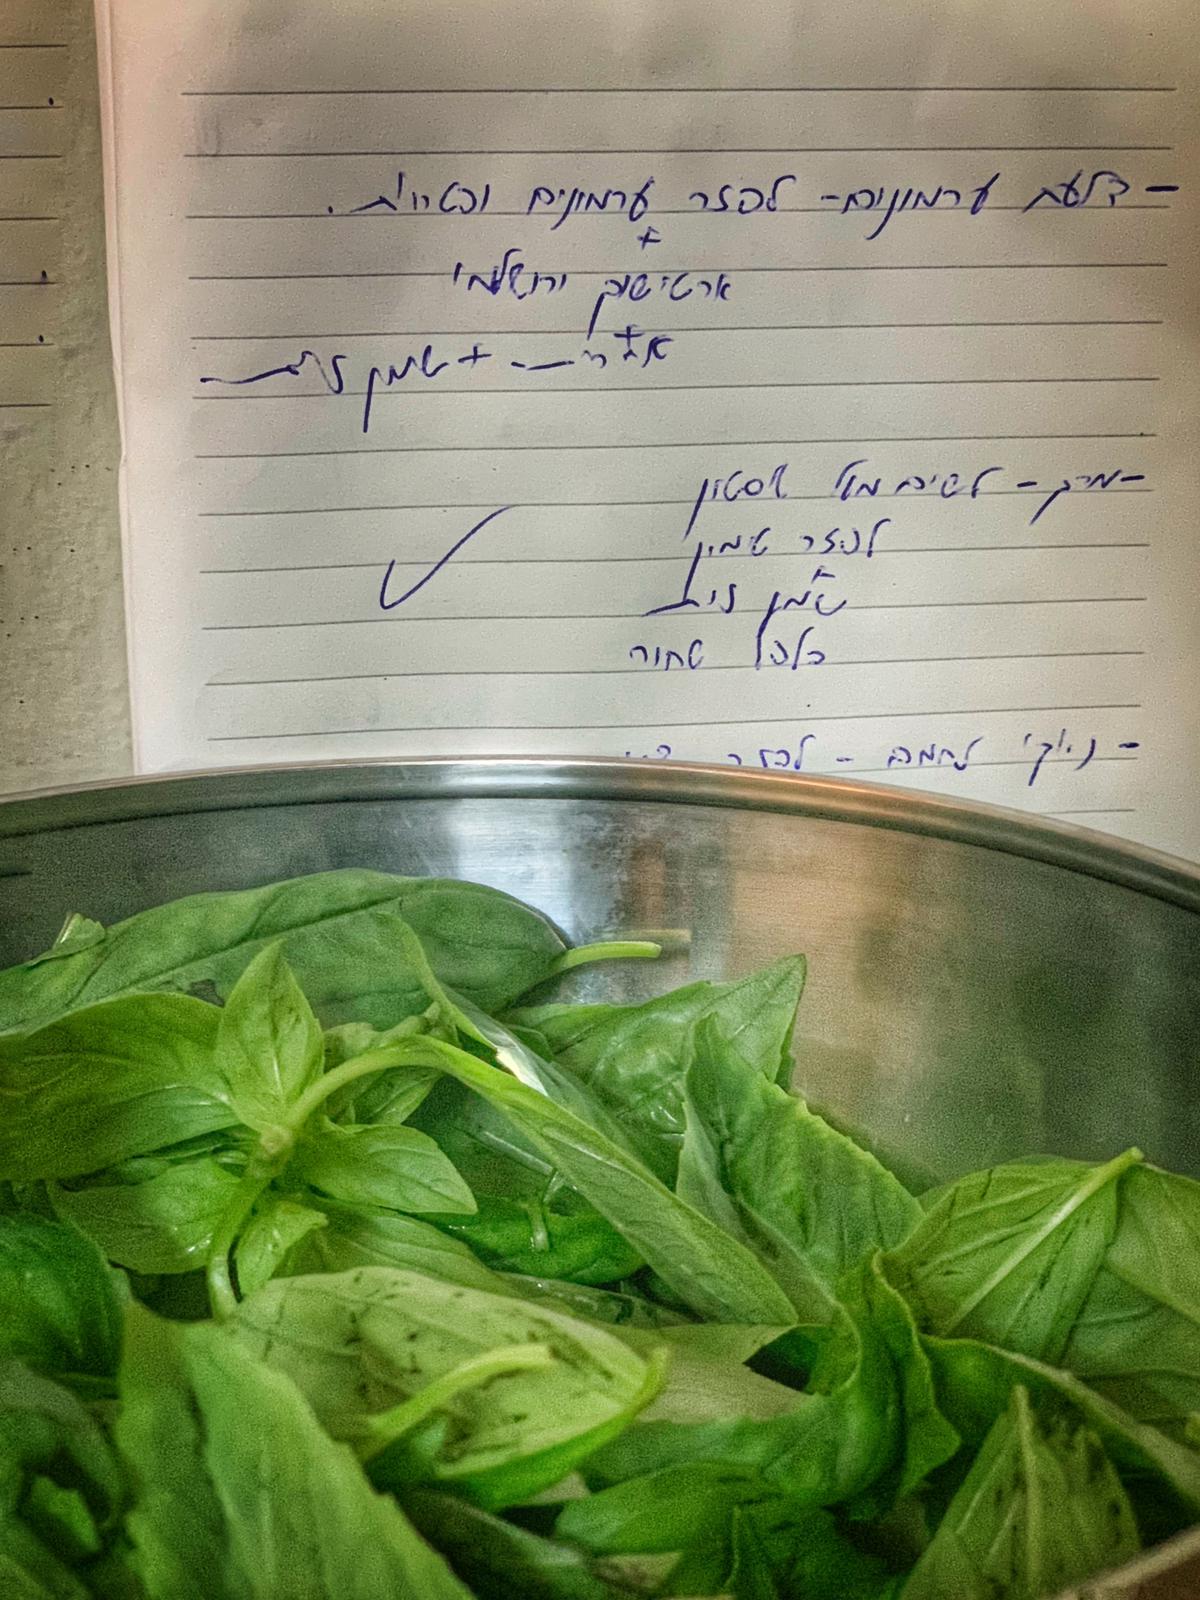 - דלעת ערמונים - לפזר ערמונים ופטריות.
+
ארטישוק ירושלמי
+
אגוזי + שמן זית
- מרק - לשים מולי
לפזר טימין
+
שמן זית
פלפל שחור
- ניוקי לחמה - לפזר